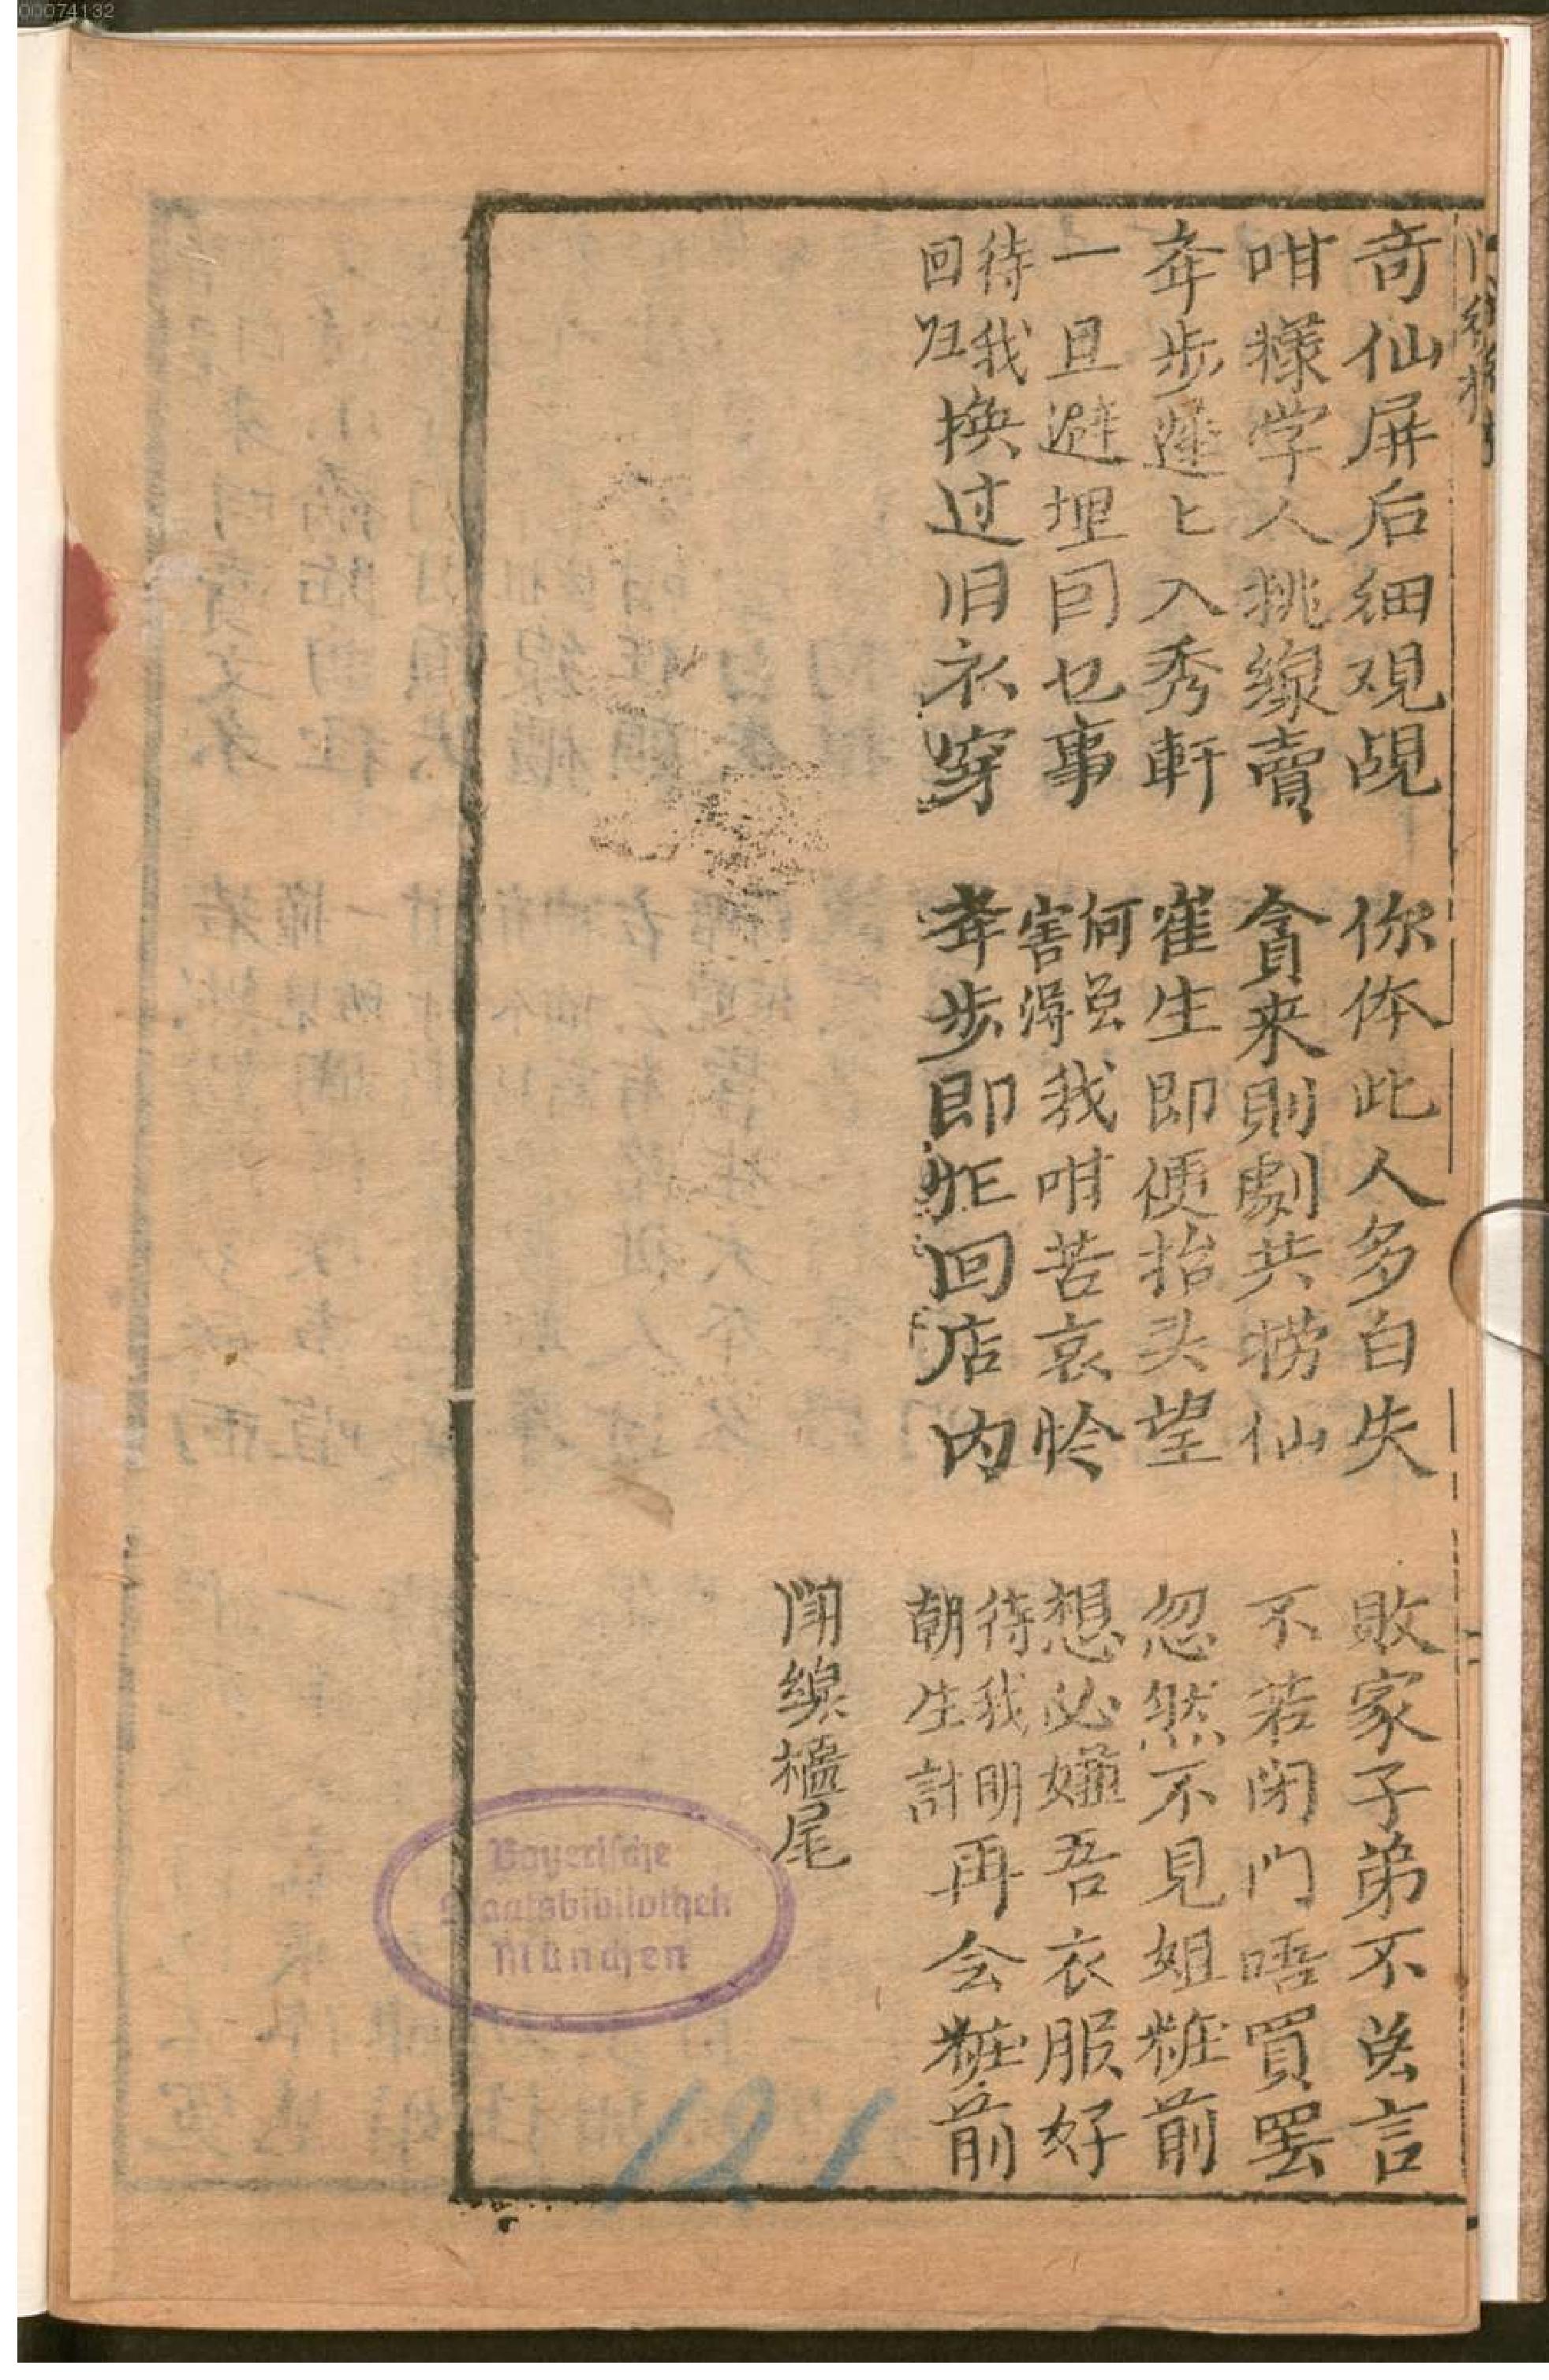 00074132
奇仙屏后细观覘 你体此人多白失 敗家子弟不送言
咁樣学人挑線賣 貪来則劇共捞仙 不若闭门唔買罢
奔步遲匕入秀軒 崔生即便抬头望 忽然不見姐粧前
一旦避埋囙乜事 何忍害得我咁苦哀怜 想必嫌吾衣服好
待我回归换过旧衣穿 奔步即忙回店内 待我明朝生計再会粧前
闹線櫃尾
Bayerische
Staatsbibliothek
München
121